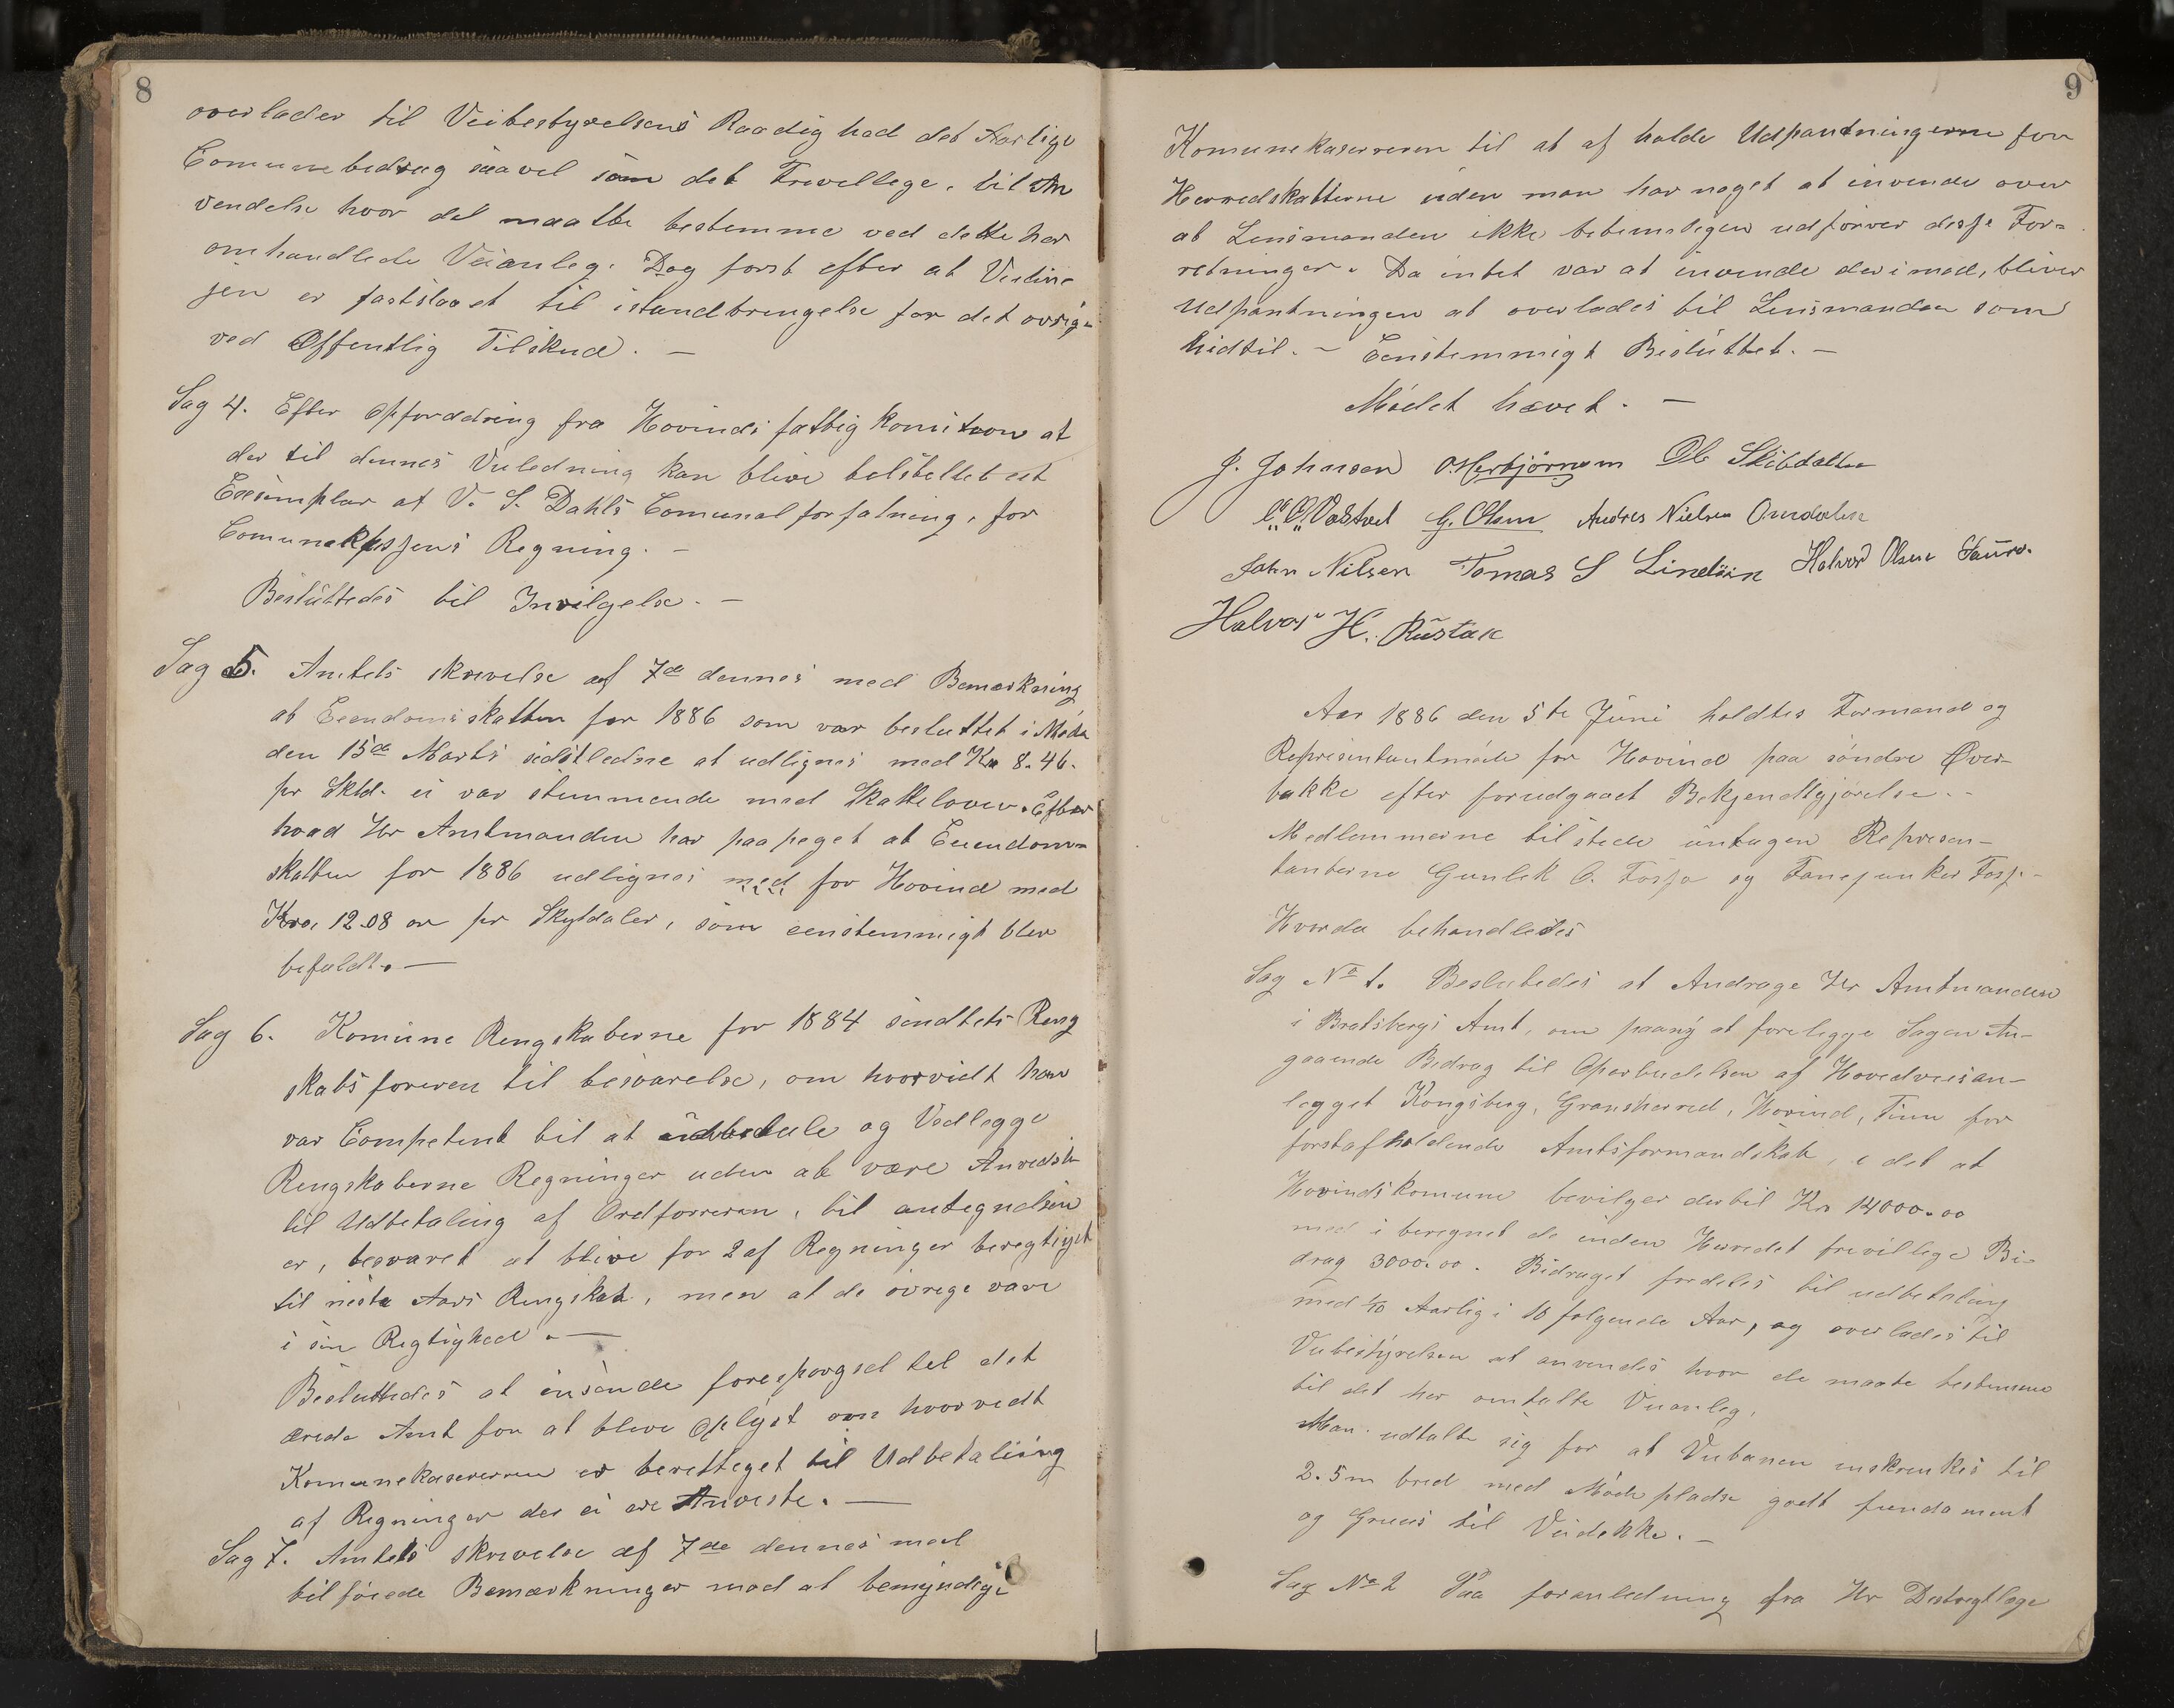 8
overlader til Veibestyrelsens Raadighed det Aarlige
Comunebedrag saavel som det Frevellege, til An
vendelse hvor det maatte bestemme ved dette her
omhandlede Veianleg. Dog først efter at Veilin
jen er fastslaaet til istandbringelse for det øvrige
ved Offentlig Tilskud. —
Sag 4. Efter Opforddring fra Hovinds fattig komition at
der til dennes Veiledning kan blive bestellet et
Exsemplar af V. S. Dahls Comunal forfatning, for
Comunekassens Regning. —
Besluttedes til Invilgelse. —
Sag 5. Amtets skrivelse af 7de dennes med Bemærkning
at Eiendomsskatten for 1886 som var besluttet i Møde
den 15de Marts sidstledne at udlignes med Kr 8.46.
pr Skld. ei var stemmende med Skatteloven. Efter
hvad Hr Amtmanden har paapeget at Eiendoms
skatten for 1886 udlignes med for Hovind med
Kro, 12.08 ør pr Skyldaler, som eenstemmigt blev
befaldt. —
Sag 6. Komune Rengskaberne for 1884 sendtets Reng
skabsføreren til besvarelse, om hvorvidt han
var Competent til at udbetale og Vedlegge
Rengskaberne Regninger uden at være Anvedste
til Udbetaling af Ordførreren, til antegnelsen
er, besvaret at blive for 2 af Regninger beregtiget
til neste Aars Rengskab, men at de øvrege vare
i sin Regtighed. —
Besluttedes at insende forespørgsel til det
ærede Amt for at bleve Oplyst om hvorvedt
Komunekasereren er beretteget til Udbetaling
af Regninger der ei ere Anveste. —
Sag 7. Amtets skrivelse af 7de dennes med
tilføiede Bemærkninger mod at bemyndige
9
Komunekasereren til at af holde Udpantningerne for
Herredskatterne uden man har noget at invende over
at Lensmanden ikke betimeligen udfører desse For-
retninger. Da intet var at invende derimod, bliver
Udpantningen at overlades til Lensmanden som
hidtil. – Eenstemmigt Besluttet. —
Mødet hævet. —
J. Johnsen O. Herbjörnsen Ole Skibdalen
G. Olsen Andres Nielsen
John Nilsen Tomas S Halvor Olsen
Halvor H. Rustak
Aar 1886 den 5te Juni holdtes Formand og
Represintantmøde for Hovind paa søndre Øver-
bakke efter forudgaaet Bekjendtgjørelse. -
Medlemmerne tilstede untagen Represen-
tanterne Gunlek O. Fosse og Fanejunker Fosse
Hvorda behandledes
Sag No 1. Beslutedes at Andrage Hr Amtmanden
i Bratsbergs Amt, om paany at forelegge Sagen An-
gaaende Bedrag til Oparbeidelsen af Hovedveisan-
legget Kongsberg, Gransherred, Hovind, Tinn for
førstafholdende Amtsformandskab, i det at
Hovinds komune bevilger dertil Kr 14000.00
med i beregnet de inden Herredet frivillege Bi-
drag 3000.00. Bidraget fordeles til udbetaling
med 1/10 Aarlig i 10 følgende Aar, og overlades til
Veibestyrelsen at anvendes hvor de maate bestemme
til det her omtalte Veianleg.
Man udtalte sig for at Veibanen inskrenkes til
2.5 m bred med Møde pladse godt fundament
og Gruus til Veidekke. —
Sag No 2 Paa foranledning fra Hr Destregtlæge